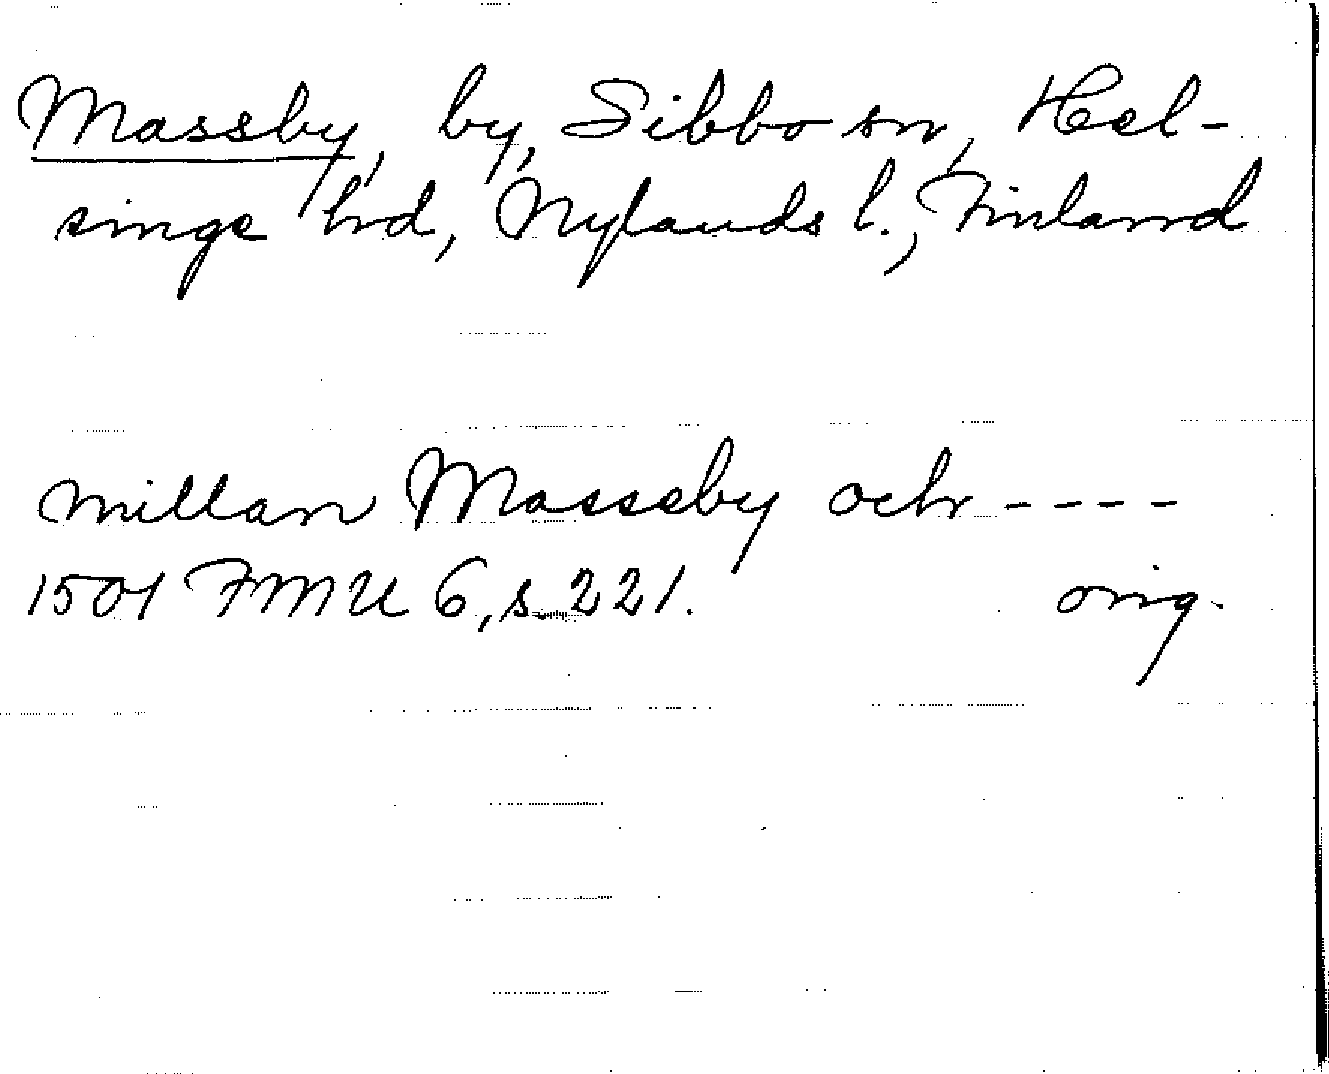 Massby, by, Sibbo sn, Hel-
singe hd, Nylands l., Finland
millan Masseby och - - - -
1501 FMU 6, s. 221. orig.